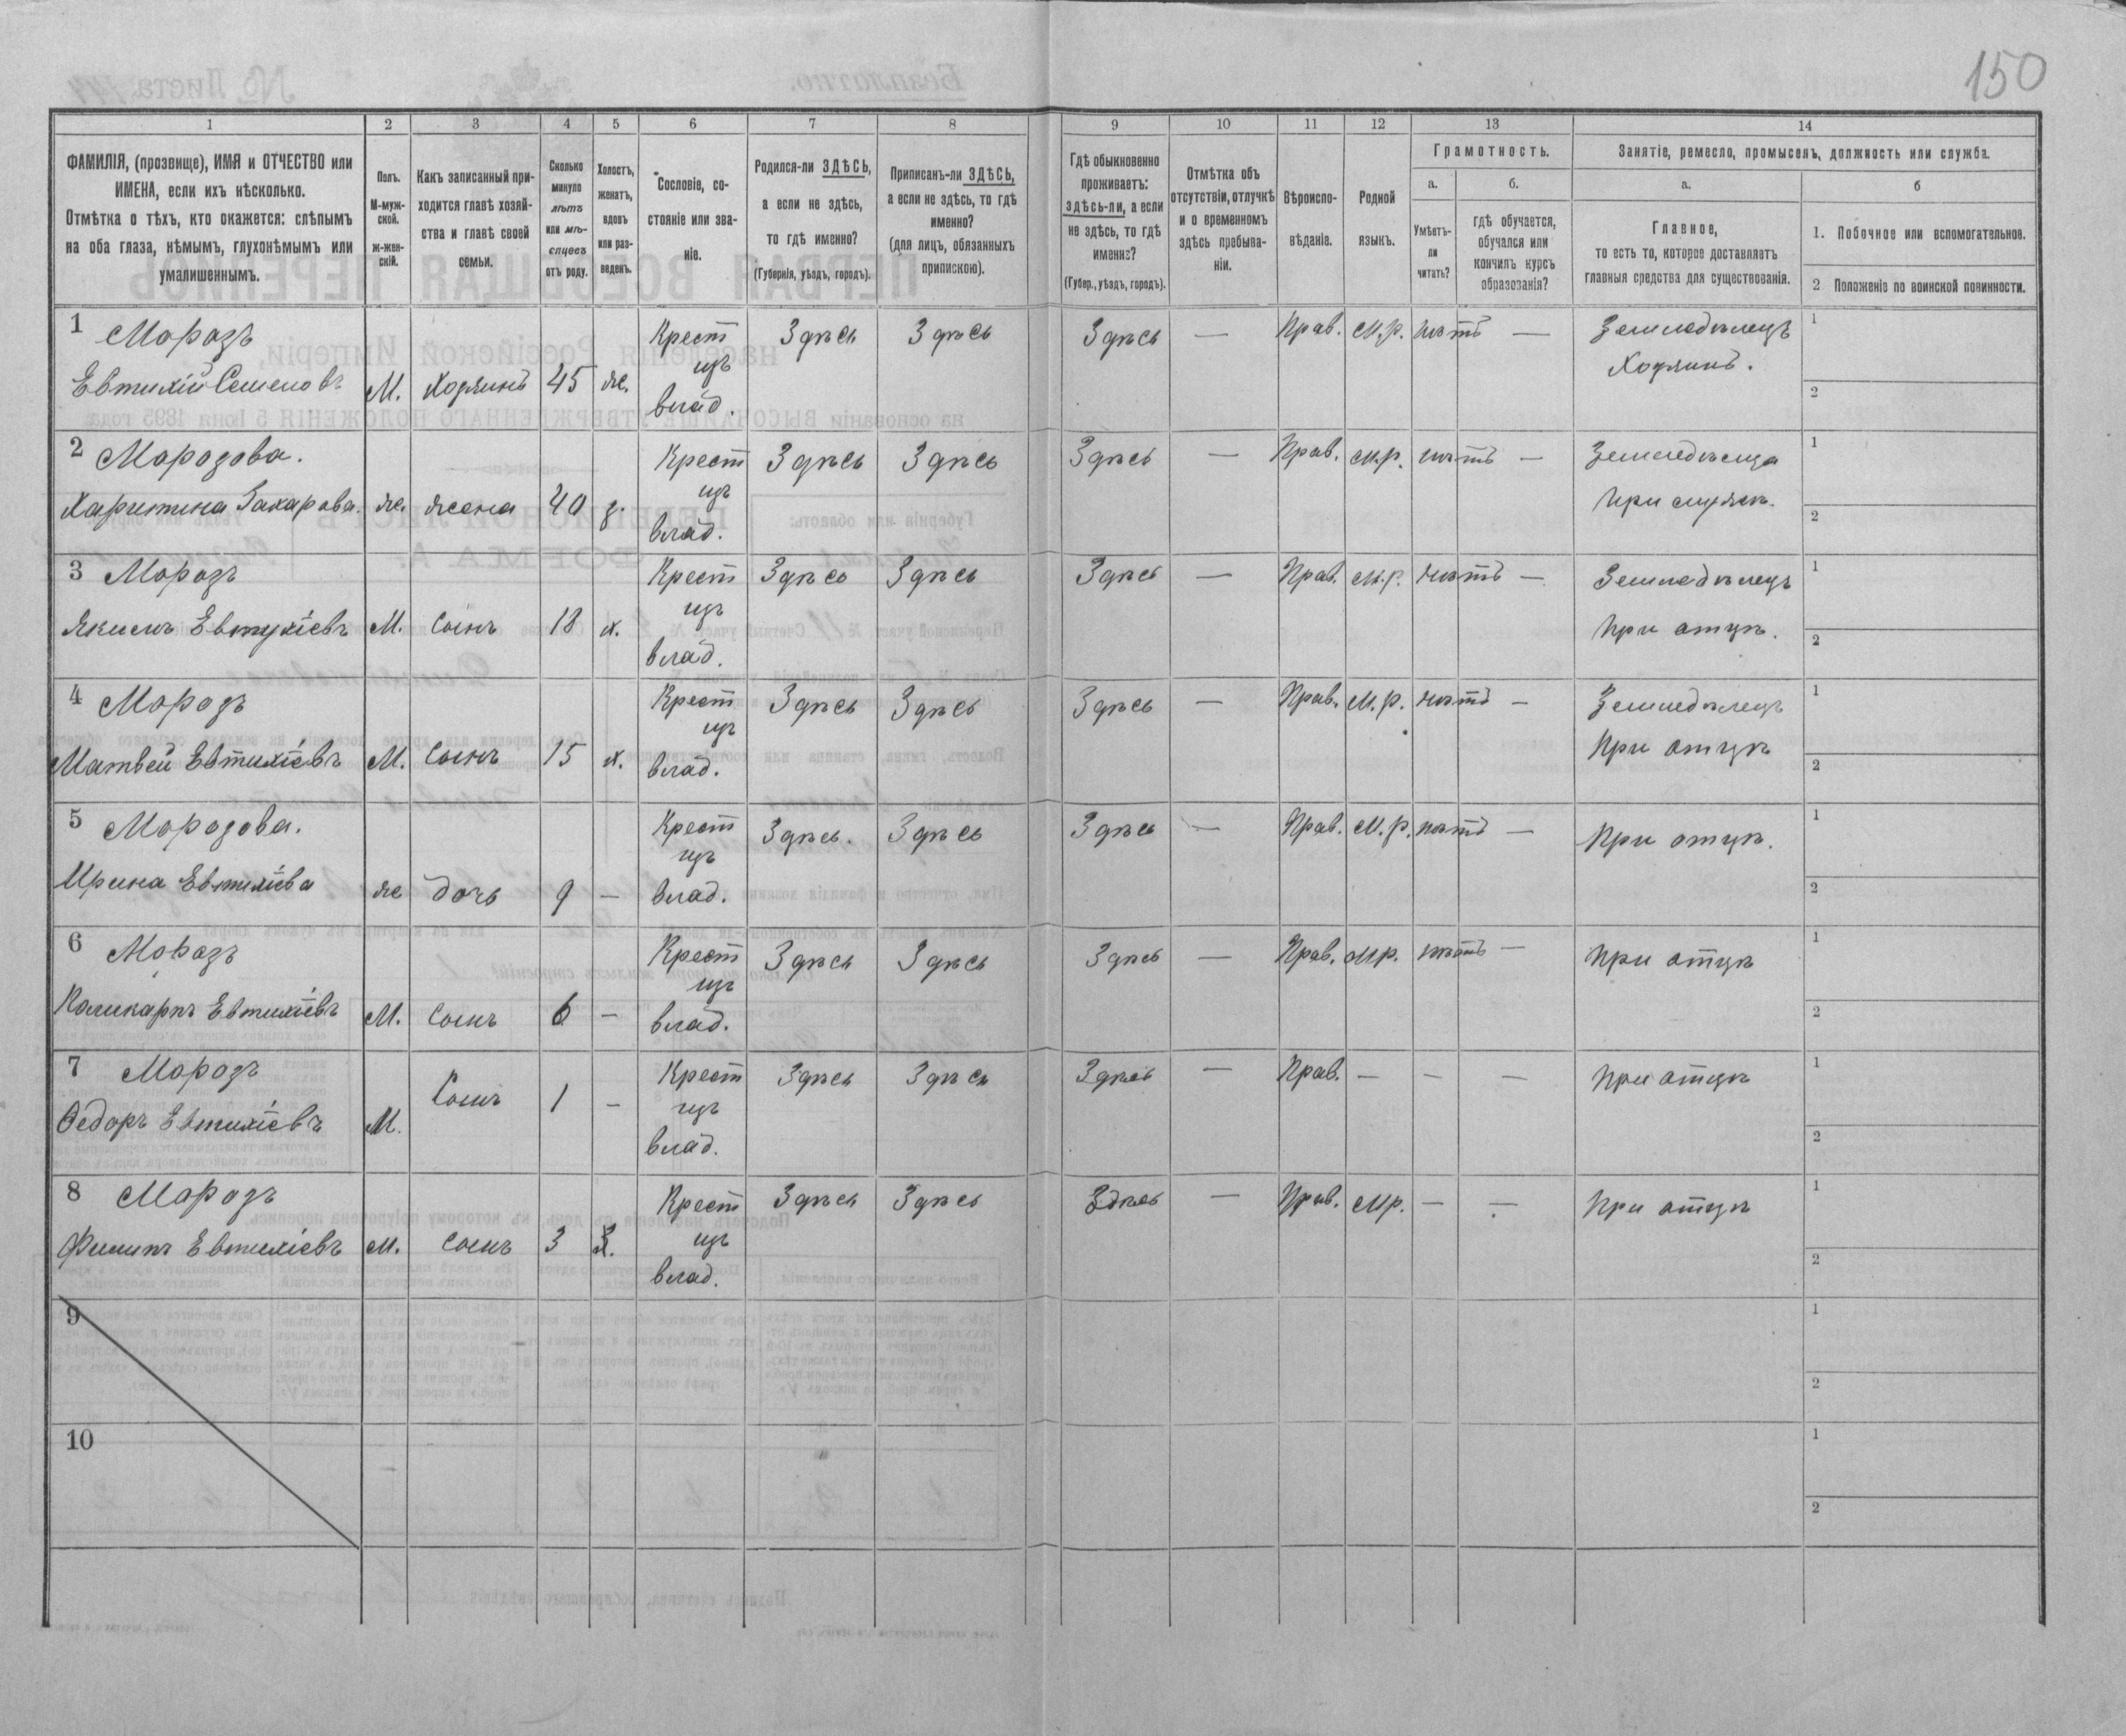 150
1
2
3
4
5
6
7
8
9
10
11
12
13
14
ФАМИЛІЯ, (прозвище), ИМЯ и ОТЧЕСТВО или
ИМЕНА, если ихъ нѣсколько.
Отмѣтка о тѣхъ, кто окажется: слѣпымъ
на оба глаза, нѣмымъ, глухонѣмымъ или
умалишеннымъ.
Полъ.
М-муж-
ской.
ж-жен-
скій.
Какъ записанный при-
ходится главѣ хозяй-
ства и главѣ своей
семьи.
Сколько
минуло
лѣтъ
или мѣ-
сяцевъ
отъ роду.
Холостъ,
женатъ,
вдовъ
или раз-
веденъ.
Сословіе, со-
стояніе или зва-
ніе.
Родился-ли ЗДѢСЬ,
а если не здѣсь,
то гдѣ именно?
(Губернія, уѣздъ, городъ).
Приписанъ-ли ЗДѢСЬ,
а если не здѣсь, то гдѣ
именно?
(для лицъ, обязанныхъ
припискою).
Гдѣ обыкновенно
проживаетъ:
здѣсь-ли, а если
не здѣсь, то гдѣ
именно?
(Губер., уѣздъ, городъ).
Отмѣтка объ
отсутствіи, отлучкѣ
и о временномъ
здѣсь пребыва-
ніи.
Вѣроиспо-
вѣданіе.
Родной
языкъ.
Грамотность.
а.
б.
Умѣетъ-
ли
читать?
гдѣ обучается,
обучался или
кончилъ курсъ
образованія?
Занятіе, ремесло, промыселъ, должность или служба.
а.
б
Главное,
то есть то, которое доставляетъ
главныя средства для существованія.
1. Побочное или вспомогательное.
2 Положеніе по воинской повинности.
1 Морозъ
Евтихій Семеновъ М. Хозяинъ 45 ж. Крест изъ влад. Здѣсь Здѣсь Здѣсь — Прав. М.р. нѣтъ — Земледѣлецъ
Хозяинъ.
1
2
2 Морозова.
Харитина Захарова. ж. жена 40 з. Крест изъ влад. Здѣсь Здѣсь Здѣсь — Прав. м.р. нѣтъ —
При мужѣ.
1
2
3 Морозъ
Якимъ Евтухіевъ М. Сынъ 18 х. Крест изъ влад. Здѣсь Здѣсь Здѣсь — Прав. м.р. нѣтъ — Земледѣлецъ
При отцѣ.
1
2
4 Морозъ
Матвей Евтихіевъ М. Сынъ 15 х. Крест изъ влад. Здѣсь Здѣсь Здѣсь — Прав. М.р. нѣтъ — Земледѣлецъ
При отцѣ
1
2
5 Морозова.
Ирина Евтихіева ж дочь 9 — Крест изъ влад. Здѣсь. Здѣсь Здѣсь — Прав. М.р. нѣтъ — При отцѣ.
1
2
6 Морозъ
Поликарпъ Евтихіевъ М. Сынъ 6 — Крест изъ влад. Здѣсь Здѣсь Здѣсь — Прав. Мр. нѣтъ — При отцѣ
1
2
7 Морозъ
Ѳедоръ Евтихіевъ М. Сынъ 1 — Крест изъ влад. Здѣсь Здѣсь Здѣсь — Прав. — — — При отцѣ
1
2
8 Морозъ
Филипъ Евтихіевъ М. Сынъ 3 Крест изъ влад. Здѣсь Здѣсь Здѣсь — Прав. Мр. — — При отцѣ
1
2
9
1
2
10
1
2